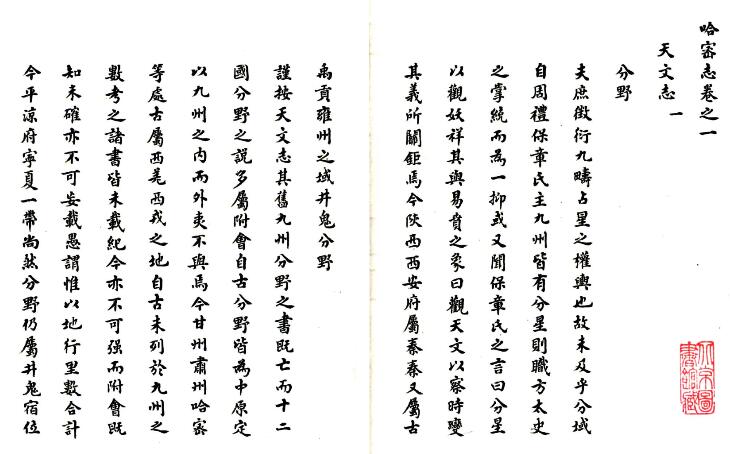 哈密志卷之一
天文志一
分野
夫庶徴衍九疇占星之權輿也故未及乎分域
自周禮保章氏主九州皆有分星則職方太史
之掌統而為一抑或又聞保章氏之言曰分星
以觀妖祥其與易賁之象曰觀天文以察時變
其義所關鉅焉今陜西西安府屬秦秦又屬古
禹貢雍州之域井鬼分野
謹按天文志其舊九州分野之書既亡而十二
國分野之説多屬附會自古分野皆為中原定
以九州之内而外夷不與焉今甘州肅州哈密
等處古屬西羌西戎之地自古未列於九州之
數考之諸書皆未載紀今亦不可强而附會既
知未確亦不可妄載愚謂惟以地行里數合計
今平涼府寧夏一帶尚然分野仍屬井鬼宿位